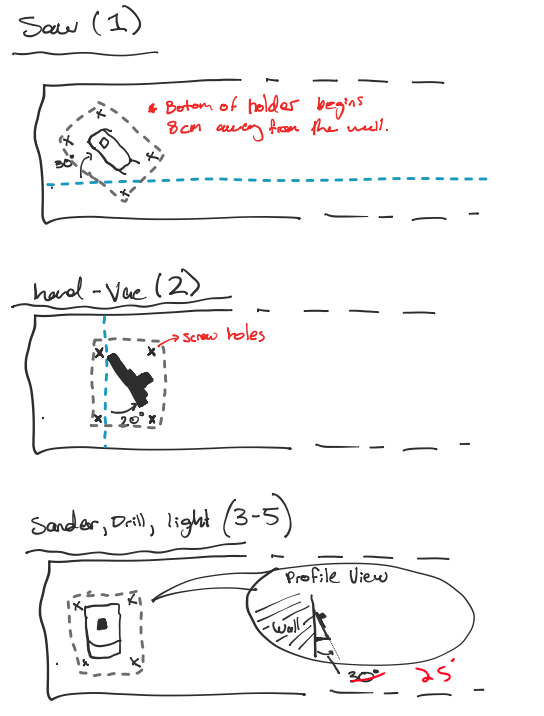 Saw (1)
* Bottom of holder begins
8cm away from the wall.
30°
hand-Vac (2)
screw holes
20°
Sander, Drill, light (3-5)
Profile View
Wall
30° 25°